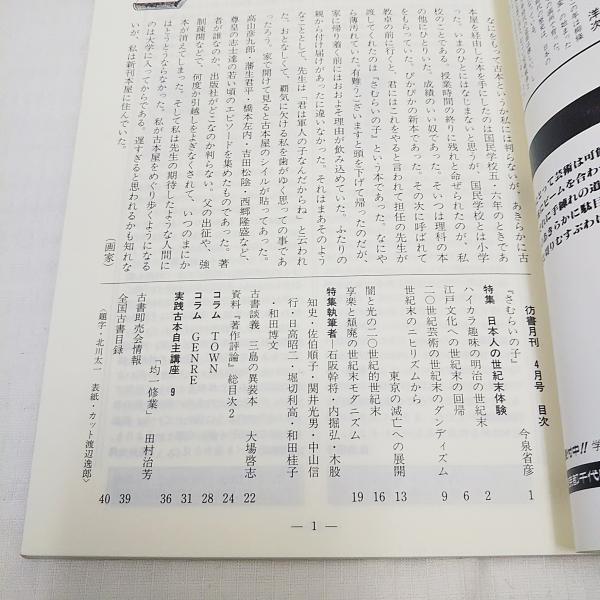 なにをもって古本というか私には判らないが、あきらかに古
本屋を経由した本を手にしたのは国民学校五・六年のときであ
った。いまのひとにはなじまないと思うが、国民学校とは小学
校のことである。授業時間の終りに残れと命ぜられたのが、私
の他にひとりいた。成績のいい奴であった。そいつは理科の本
をもらっていた。ぴかぴかの新本であった。その次に呼ばれて
教卓の前に行くと、君にはこれをやると言われて担任の先生が
渡してくれたのは『さむらいの子』という本であった。なにや
ら薄汚れていた。有難うございますと頭を下げて帰ったのだが、
家に帰り着く前にはおおよそ理由が飲み込めていた。ふたりの
親から付け届けがあったに違いなかった。それはまあそのよう
なこととして、先生は「君は軍人の子なんだからね」と云われ
た。おとなしくて、覇気に欠ける私を歯がゆく思っての事であ
ったろう。家で開けて見ると古本屋のシイルが貼ってあった。
高山彦九郎・藩生君平・橋本左内・吉田松陰・西郷隆盛など、
尊皇の志士達の若い頃のエピソードを集めたものであった。著
者が誰なのか、出版社がどこなのか判らない。父の出征や、強
制疎開などで、何度か引越しをよぎなくされて、いつのまにか
本が消えてしまった。そして私は先生の期待したような人間に
はとうとうならなかった。私が古本屋をめぐり歩くようになる
のは大学に入ってからである。遅すぎると思われるかも知れな
いが、私は新刊本屋に住んでいた。
（画家）
彷書月刊 4月号 目次
『さむらいの子』 今泉省彦 1
特集 日本人の世紀末体験
ハイカラ趣味の明治の世紀末 2
江戸文化への世紀末の回帰 6
二〇世紀芸術の世紀末のダンディズム 9
世紀末のニヒリズムから
東京の滅亡への展開 13
闇と光の二〇世紀的世紀末 16
享楽と頽廃の世紀末モダニズム 19
特集執筆者─石阪幹将・内堀弘・木股
知史・佐伯順子・関井光男・中山信
行・日高昭二・堀切利高・和田桂子
・和田博文
古書談義 三島の異装本 大場啓志 22
資料『著作評論』総目次2 24
コラム TOWN 28
コラム GENRE 31
実践古本自主講座 9
「均一修業」 田村治芳 36
古書即売会情報 39
全国古書目録 40
〈題字・北川太一 表紙・カット渡辺逸郎〉
― 1 ―